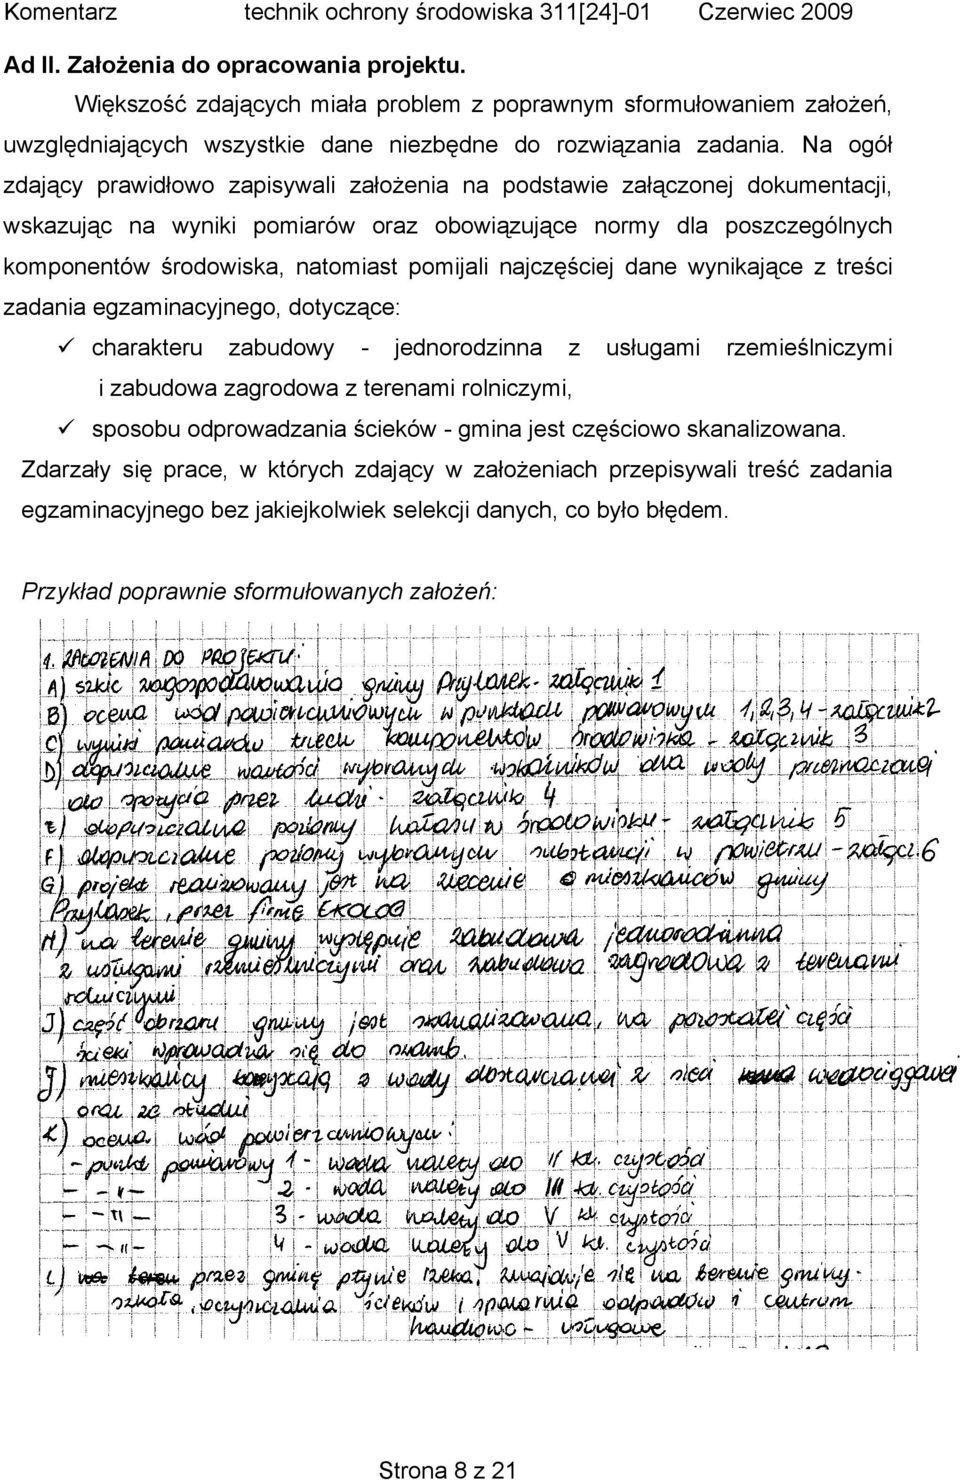 Komentarz technik ochrony środowiska 311[24]-01 Czerwiec 2009
Ad II. Założenia do opracowania projektu.
Większość zdających miała problem z poprawnym sformułowaniem założeń,
uwzględniających wszystkie dane niezbędne do rozwiązania zadania. Na ogół
zdający prawidłowo zapisywali założenia na podstawie załączonej dokumentacji,
wskazując na wyniki pomiarów oraz obowiązujące normy dla poszczególnych
komponentów środowiska, natomiast pomijali najczęściej dane wynikające z treści
zadania egzaminacyjnego, dotyczące:
✓ charakteru zabudowy - jednorodzinna z usługami rzemieślniczymi
i zabudowa zagrodowa z terenami rolniczymi,
✓ sposobu odprowadzania ścieków - gmina jest częściowo skanalizowana.
Zdarzały się prace, w których zdający w założeniach przepisywali treść zadania
egzaminacyjnego bez jakiejkolwiek selekcji danych, co było błędem.
Przykład poprawnie sformułowanych założeń:
1. ZAŁOŻENIA DO PROJEKTU:
A) szkic zagospodarowania gminy Przylasek - załącznik 1
B) ocena wód powierzchniowych w punktach pomiarowym 1,2,3,4 - załącznik 2
C) wyniki pomiarów trzech komponentów środowiska - załącznik 3
D) dopuszczalne wartości wybranych wskaźników dla wody przeznaczonej
do spożycia przez ludzi - załącznik 4
E) dopuszczalna poziomy hałasu w środowisku - załącznik 5
F) dopuszczalne poziomy wybranych substancji w powietrzu - załącz. 6
G) projekt realizowany jest na zlecenie mieszkańców gminy
Przylasek, przez firmę EKOLOG
H) na terenie gminy występuje zabudowa jednorodzinna
z usługami rzemieślniczymi oraz zabudowa zagrodowa z terenami
rolniczymi
I) część obszaru gminy jest skanalizowana, na pozostałej części
ścieki wprowadza się do szamb.
J) mieszkańcy korzystają z wody dostarczanej z sieci wodociągowej
oraz ze studni
K) ocena wód powierzchniowych:
- punkt pomiarowy 1 - woda należy do II kl. czystości
- -"- 2 - woda należy do III kl. czystości
- -"- 3 - woda należy do V kl czystości
- -"- 4 - woda należy do V kl. czystości
L) przez gminę płynie rzeka, znajduje się na terenie gminy -
szkoła, oczyszczalnia ścieków i spalarnia odpadów i centrum
handlowo - usługowe
Strona 8 z 21